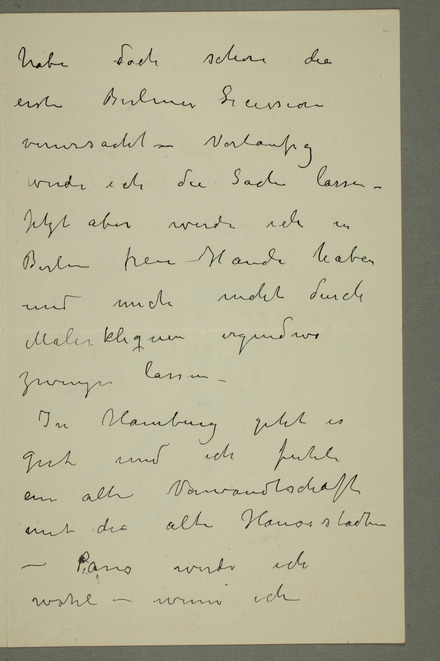 habe doch schon die
erste Berliner Secession
verursacht – Vorläufig
werde ich die Sache lassen –
Jetzt aber werde ich in
Berlin freie Hände haben
und mich nicht durch
Malerkliquen irgendwo
zwingen lassen –
In Hamburg geht es
gut und ich fühle
ein alte Verwandtschaft
mit die alte Hansestädten
– Paris werde ich
wohl – wenn ich